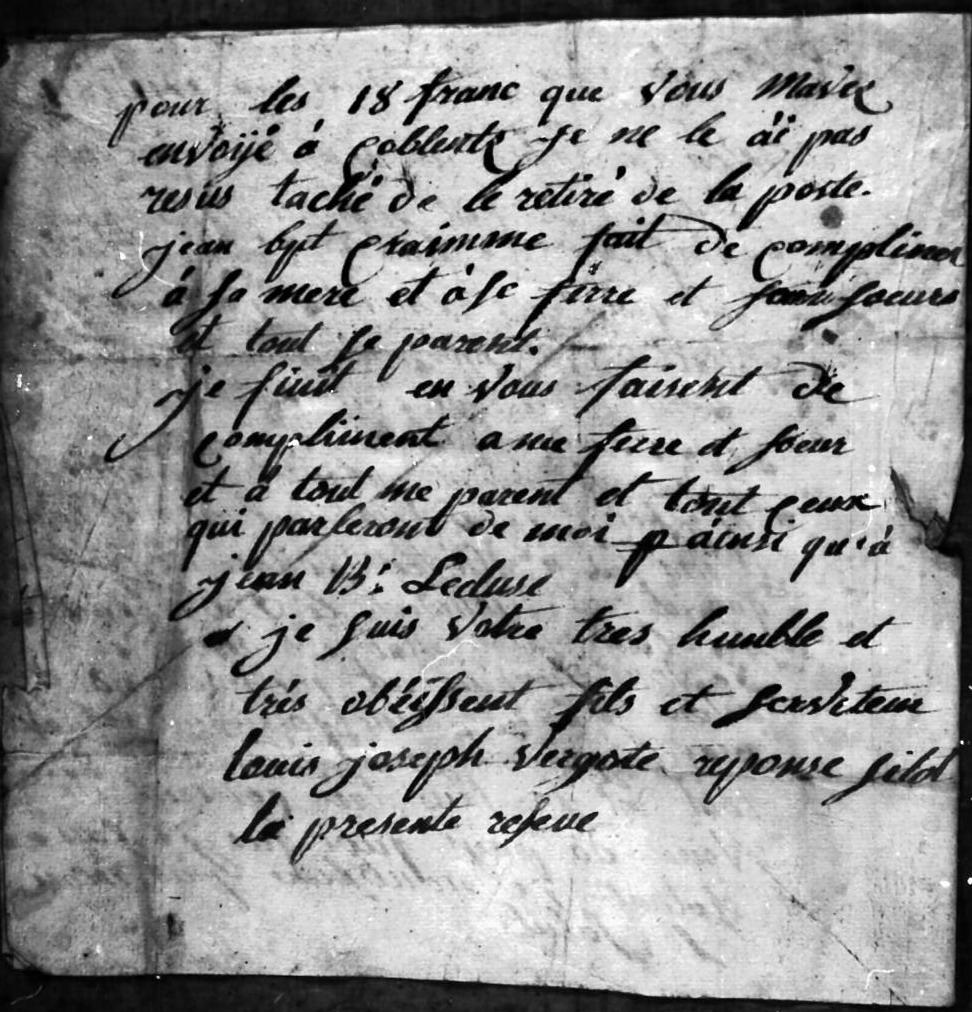 pour les 18 franc que vous mavez
envoijé á coblentz je ne le äi pas
resus taché de le retiré de la poste.
jean bpt craimme fait de complimen
á sa mere et á se frere et soeurs
et tout se parent.
je finit en vous faisent de
compliment a me frere et soeur
et á tout me parent et tout ceux
qui parleront de moi áinsi qu'á
jean B: Lecluse
je suis votre tres humble et
trés obéissent fils et serviteur
louis joseph vergote reponse sitot
la presente reseue